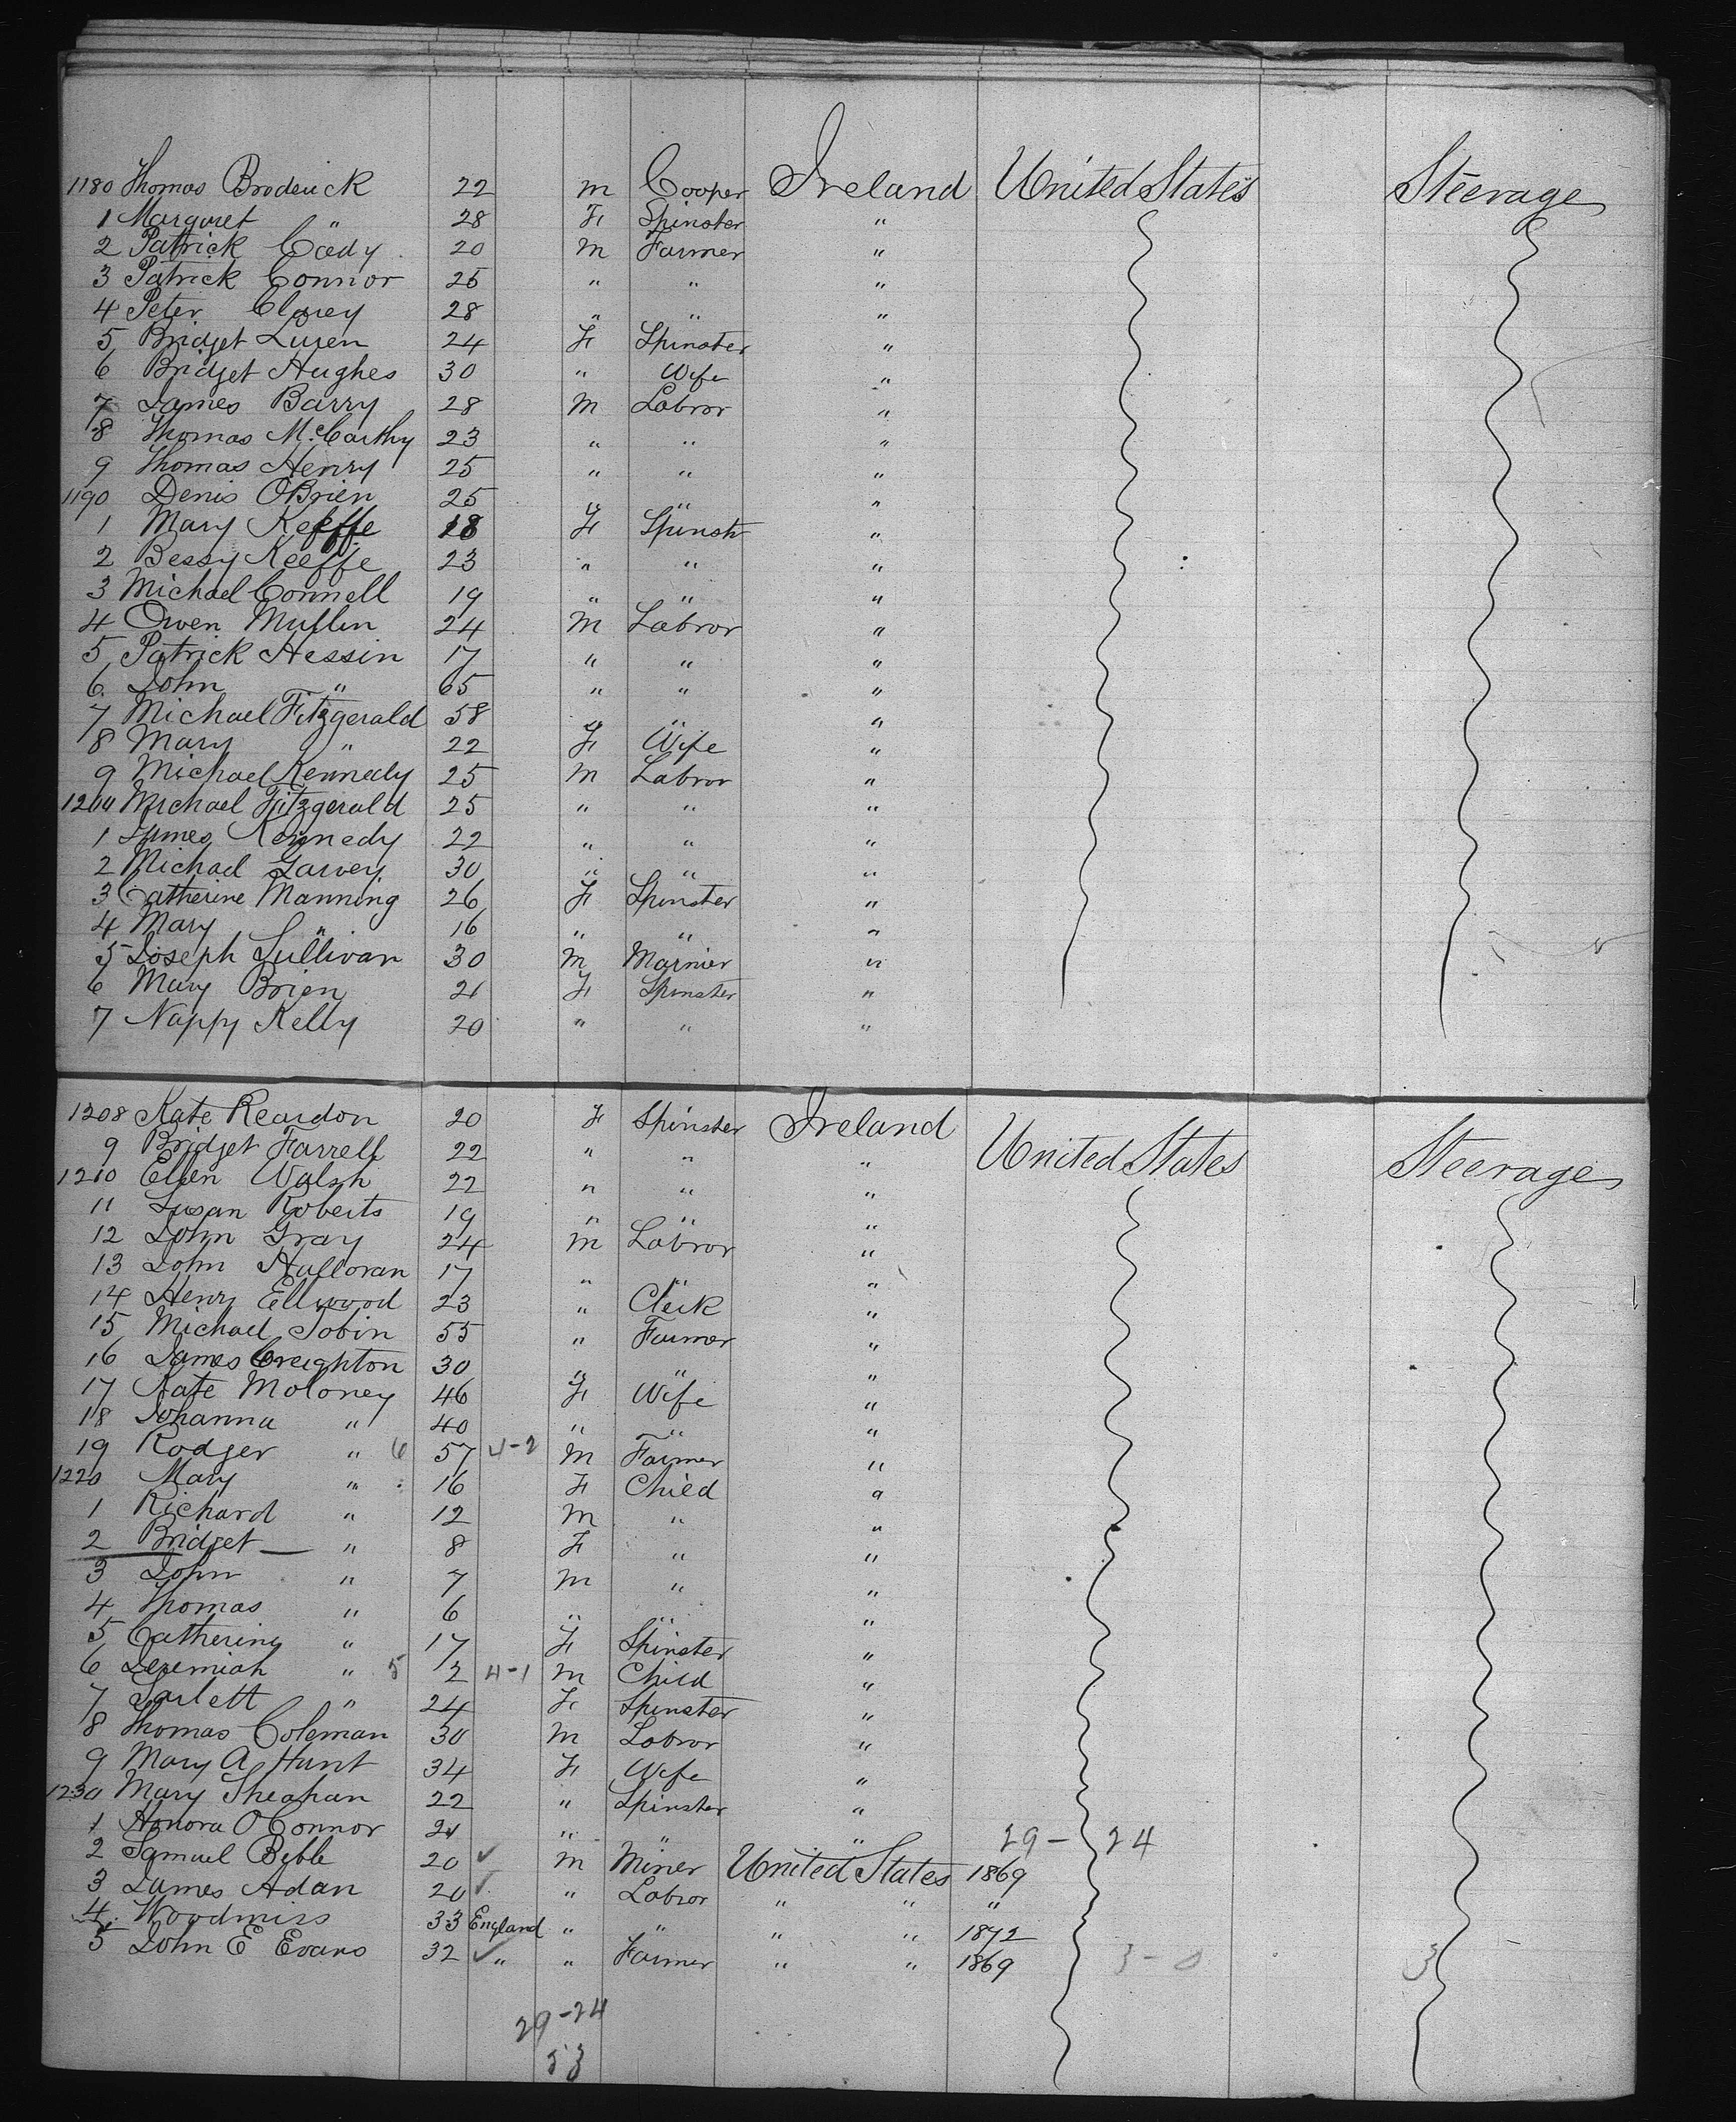 1180 Thomas Broderick 22 m Cooper Ireland United States Steerage
1 Margaret " 28 F Spinster "
2 Patrick Cody 20 m Farmer "
3 Patrick Connor 25 " " "
4 Peter Clarey 28 " " "
5 Bridget 24 F Spinster "
6 Bridget Hughes 30 " Wife "
7 James Barry 28 m Labror "
8 Thomas McCarthy 23 " " "
9 Thomas Henry 25 " " "
1190 Denis OBrien 25 " " "
1 Mary Keeffe 18 F Spinstr "
2 Bessy Keeffe 23 " " "
3 Michael Connell 19 " " "
4 Owen Mullin 24 m Labror "
5 Patrick Hessin 17 " " "
6 John " 65 " " "
7 Michael Fitzgerald 58 " " "
8 Mary " 22 F Wife "
9 Michael Kennedy 25 m Labror "
1200 Michael Fitzgerald 25 " " "
1 James Kennedy 22 " " "
2 Michael Garvey 30 " " "
3 Catherine Manning 26 F Spinster "
4 Mary " 16 " " "
5 Joseph Sullivan 30 m Marnier "
6 Mary Brien 21 F Spinster "
7 Nappy Kelly 20 " " "
1208 Kate Reardon 20 F Spinster Ireland United States Steerage
9 Bridget Farrell 22 " " "
1210 Ellen Walsh 22 " " "
11 Susan Roberts 19 " " "
12 John Gray 24 m Labror "
13 John Halloran 17 " " "
14 Henry Ellwood 23 " Clerk "
15 Michael Tobin 55 " Farmer "
16 James Creighton 30 " " "
17 Kate Moloney 46 F Wife "
18 Johanna " 40 " " "
19 Rodger " 6 57 4-2 m Farmer "
1220 Mary " 16 F Child "
1 Richard " 12 m " "
2 Bridget " 8 F " "
3 John " 7 m " "
4 Thomas " 6 " " "
5 Catherine " 17 F Spinster "
6 Jeremiah " 5 2 4-1 m Child "
7 " 24 F Spinster "
8 Thomas Coleman 30 m Labror "
9 Mary A Hunt 34 F Wife "
1230 Mary Sheahan 22 " Spinster "
1 Honora O'Connor 21 " " " 29 - 24
2 Samuel Bible 20 ✓ m Miner United States 1869
3 James Adan 20 ✓ " Labror " " "
4 Woodmiss 33 England " " " " 1872
5 John E Evans 32 ✓ " " Farmer " " 1869 3-0 3
29-24
53